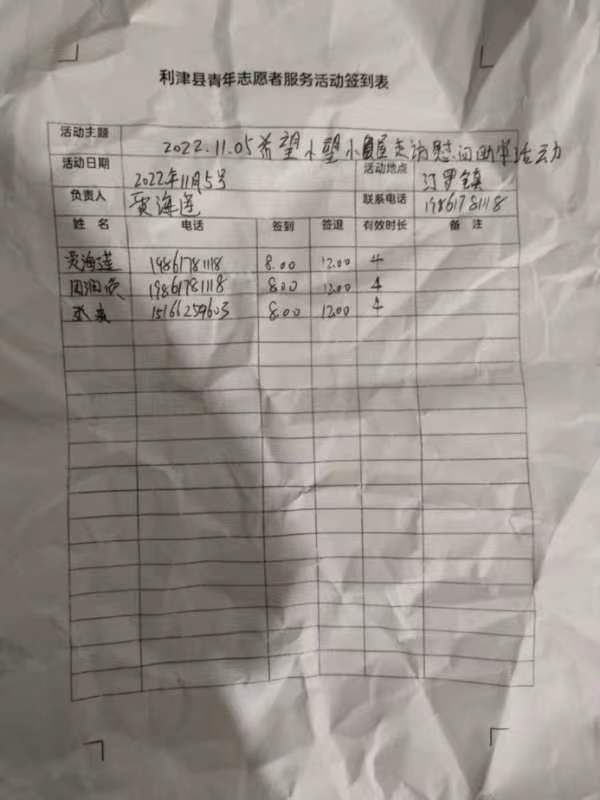 利津县青年志愿者服务活动签到表
活动主题 2022.11.05希望小望小屋走访慰问 活动
活动日期 2022年11月5号 活动地点 汀罗镇
负责人 贾海莲 联系电话 19861781118
姓 名 电话 签到 签退 有效时长 备 注
贾海莲 19861781118 8.00 12.00 4
19861781118 8.00 12.00 4
15166259603 8.00 12.00 4